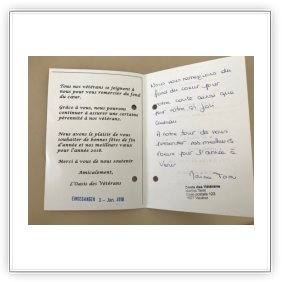 Tous nos vétérans se joignent à
nous pour vous remercier du fond
du cœur.
Grâce à vous, nous pouvons
continuer à assurer une certaine
pérennité à nos vétérans.
Nous avons le plaisir de vous
souhaiter de bonnes fêtes de fin
d'année et nos meilleurs vœux
pour l'année 2016.
Merci à vous de nous soutenir
Amicalement,
L'Oasis des Vétérans
EINGEGANGEN 5 - Jan. 2016
Nous vous remercions du
fond du cœur pour
votre
pour notre si joli
cadeau
A notre tour de vous
présenter nos meilleurs
vœux pour l'année à
venir
Oasis des Vétérans